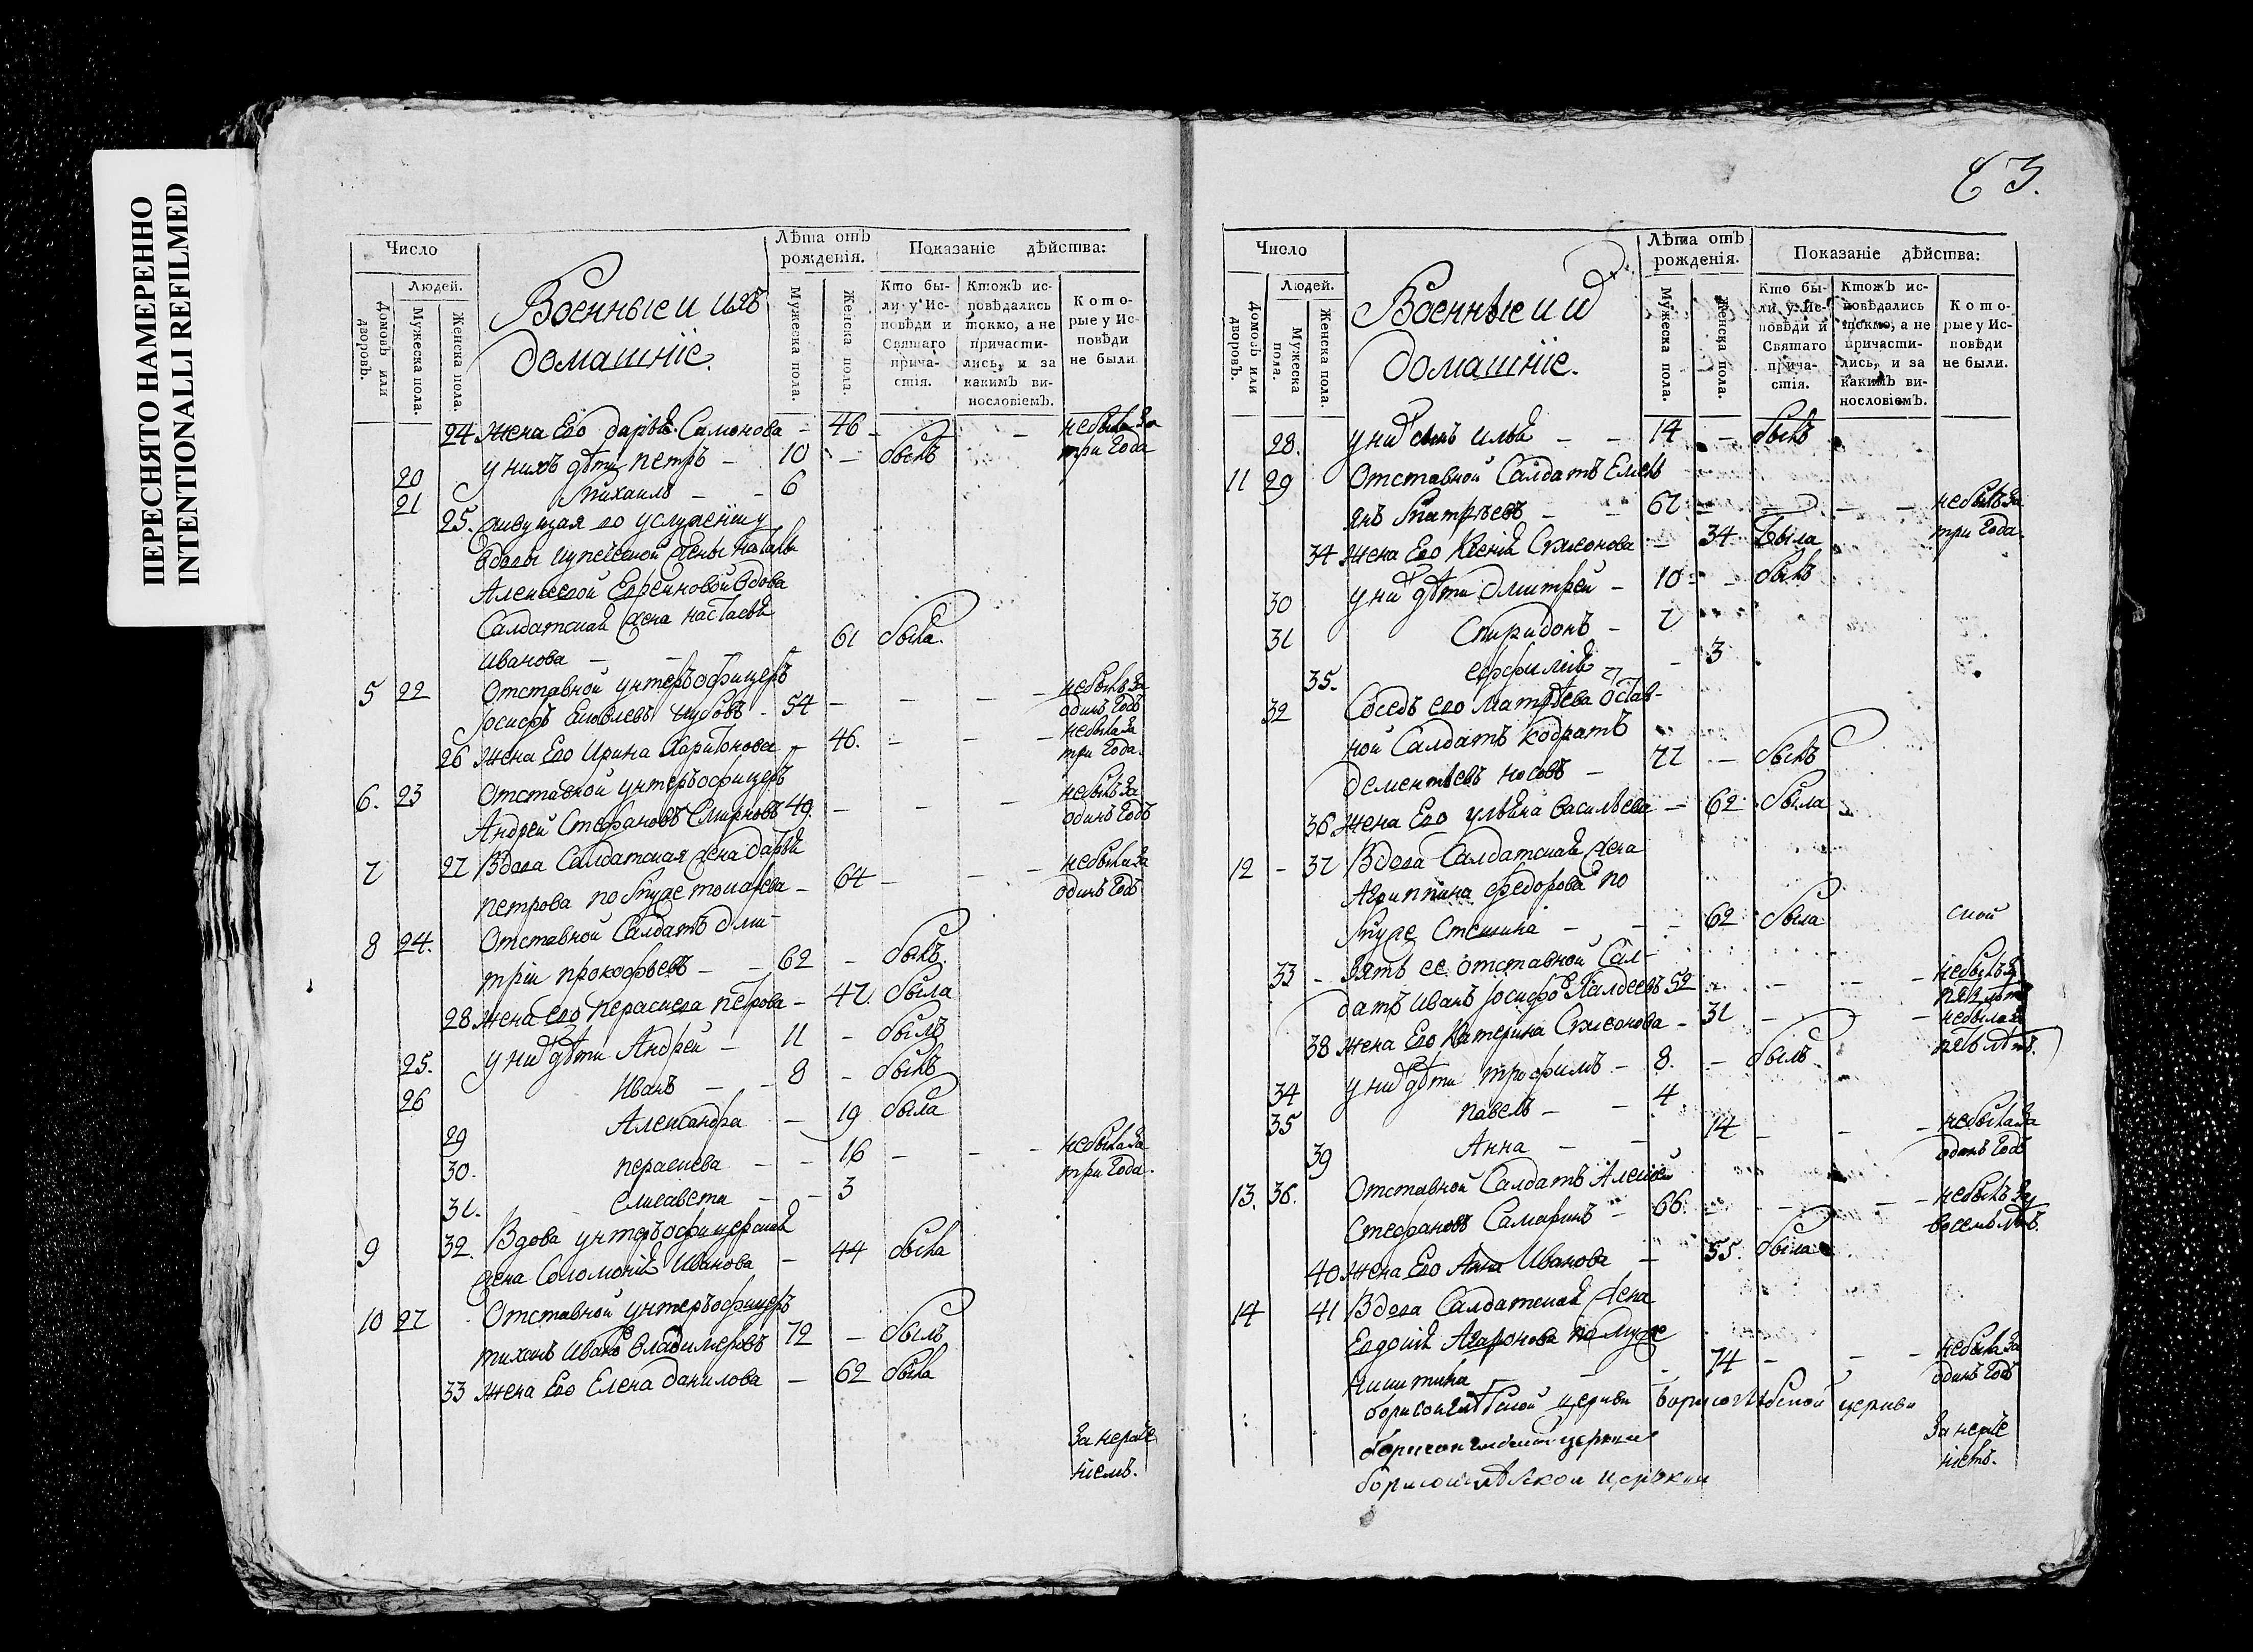 ПЕРЕСНЯТО НАМЕРЕННО
INTENTIONALLI REFILMED
63.
Число
Людей.
Домовъ или дворовъ.
Мужеска пола.
Женска пола.
Военные и ихъ
домашніе.
Лѣта отъ рожденія.
Мужеска пола.
Женска пола.
Показаніе дѣйства:
Кто бы-
ли у Ис-
повѣди и
Святаго
прича-
стія.
Ктожъ ис-
повѣдались
токмо, а не
причасти-
лись, и за
какимъ ви-
нословіемъ.
Кото-
рые у Ис-
повѣди
не были.
24 жена Его дарья Симонова - 46 - - небыла за
20 у нихъ дѣти петръ - 10 - былъ три года
21 михаилъ - - 6
25. живущая во услуженіи у
вдовы купеческой жены натальи
Алексеевой вдова
Салдатская жена настасья
иванова - - - 61 была.
5 22 Отставной унтеръофицеръ небылъ за
Іосифъ Яковлевъ - 54 - - - одинъ годъ
26 жена Его Ирина Харитонова - 46. - - - небыла за
три года.
6. 23 Отставной унтеръофицеръ небылъ за
Андрей Стефановъ Смирновъ 49. - - - одинъ годъ
7 27 Вдова Салдатская жена дарья небыла за
петрова по муже - 64 - - - одинъ годъ
8 24. Отставной Салдатъ дми-
трій прокофьевъ - - 62 - былъ.
28 жена его параскева петрова - 47. была
25. у них дѣти Андрей - 11 - былъ
26 Иванъ - - 8 - былъ
29 Александра - 19 была
30. параскева - - 16 - - - небыла за
31. елисавета - - 3 три года.
9 32. Вдова унтеръофицерская
жена Соломонія Иванова - 44 была
10 27 Отставной унтеръофицеръ
тихонъ Иванов Владимеровъ 72 - былъ
33 жена Его Елена данилова - 62 была
За нераче
ніемъ.
Число
Людей.
Домовъ или дворовъ.
Мужеска пола.
Женска пола.
Военные и их
домашніе.
Лѣта отъ рожденія.
Мужеска пола.
Женска пола.
Показаніе дѣйства:
Кто бы-
ли у Ис-
повѣди и
Святаго
прича-
стія.
Ктожъ ис-
повѣдались
токмо, а не
причасти-
лись, и за
какимъ ви-
нословіемъ.
Кото-
рые у Ис-
повѣди
не были.
28. у них сынъ илья - - 14 - былъ
11 29 Отставной Салдатъ Емель
янъ - - 67 - - - - небылъ за
34 жена Его Ксенія Симеонова - 34 была три года.
30 у них дѣти дмитрей - 10 - - былъ
31 Спиридонъ - 7
35. ефимія - 3
32 Соседъ его Матвѣева Остав-
ной Салдатъ кодратъ
дементьевъ носовъ - 77 - былъ
36 жена Его ульяна Васильева - 62 была
12 - 37 Вдова Салдатская жена
Агриппина федорова по
муже - - - 62 была ской
33 - Зять ее отставной Сал-
датъ иванъ Іосифов 52 - - - - небылъ за
пять лѣтъ
38 жена Его Катерина Симеонова - 31 - - - небыла за
пять лѣтъ.
34 у них дѣти трофимъ - 8. - былъ
35 павелъ - - 4
39 Анна - - 14 - - - небыла за
одинъ годъ
13. 36. Отставной Салдатъ Алексей
Стефановъ Самаринъ - 66. - - - - небылъ за
восемь лѣтъ.
40 жена Его Анна Иванова - 55. была
14 41 Вдова Салдатская жена
Евдокія по муже
никитина - - - 74 - - - небыла за
одинъ годъ
борисоглѣбской церкви борисоглѣбской церкви
борисоглебской церкви
борисоглѣбской церькви
За нераче
ніемъ.